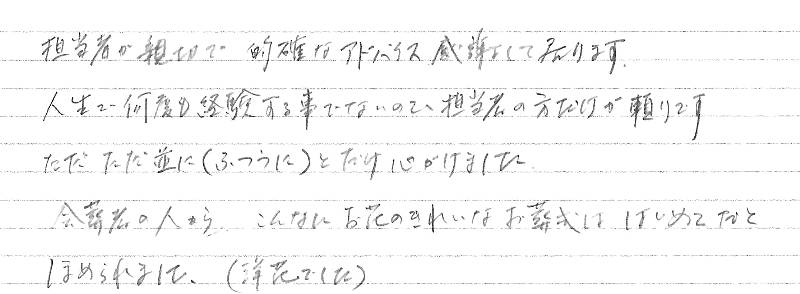 担当者が親切で 的確なアドバイス感謝して居ります。
人生で何度も経験する事でないので、担当者の方だけが頼りです
ただ ただ並に(ふつうに)とだけ心がけました
会葬者の人から こんなにお花のきれいなお葬式は はじめてだと
ほめられました、(洋花でした)